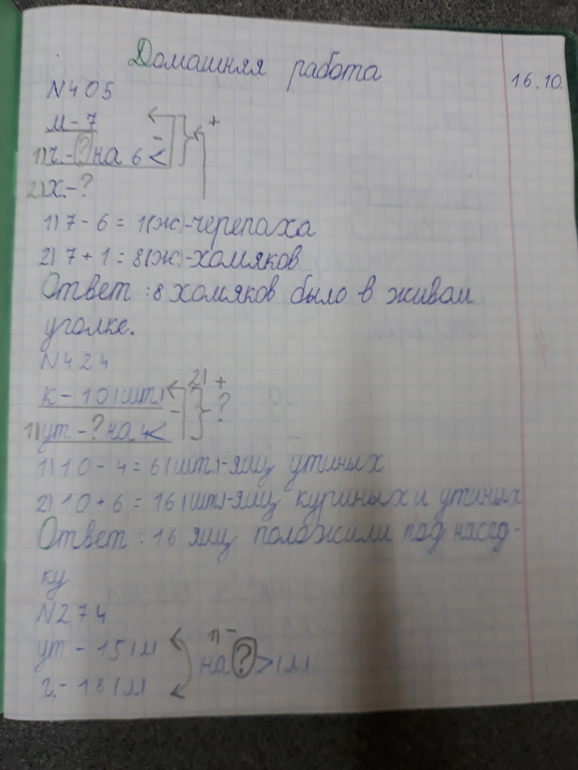 Домашняя работа
16.10.
N405
м - 7
+
-
1) ч. - ? на 6 <
2) х. - ?
1) 7 - 6 = 1(ж)-черепаха
2) 7 + 1 = 8(ж)-хомяков
Ответ : 8 хомяков было в живом
уголке.
N424
к - 10(шт.)
2) +
1) ут - ? на 4<
-
?
1) 10 - 4 = 6(шт.)-яиц утиных
2) 10 + 6 = 16(шт.)-яиц куриных и утиных
Ответ : 16 яиц положили под насед-
ку
N274
ут. - 15(м)
на ? > (м)
г. - 18(м)